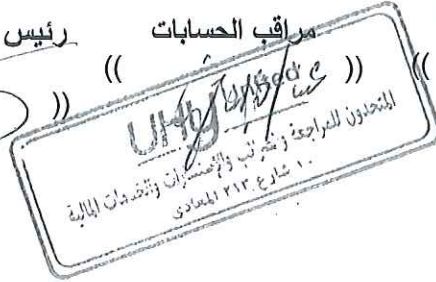 مراقب الحسابات رئيس
(( )) (( ))
UHY United
المتحدون للمراجعة والضرائب والإستشارات والخدمات المالية
١٠ شارع ٢١٣ المعادى